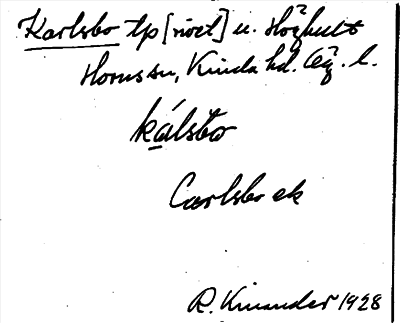 Karlsbo tp [rivet] u. Höghult
Horns sn, Kinda hd. Ög. l.
kálsbo
Carlsbo ek
R. Kinander 1928